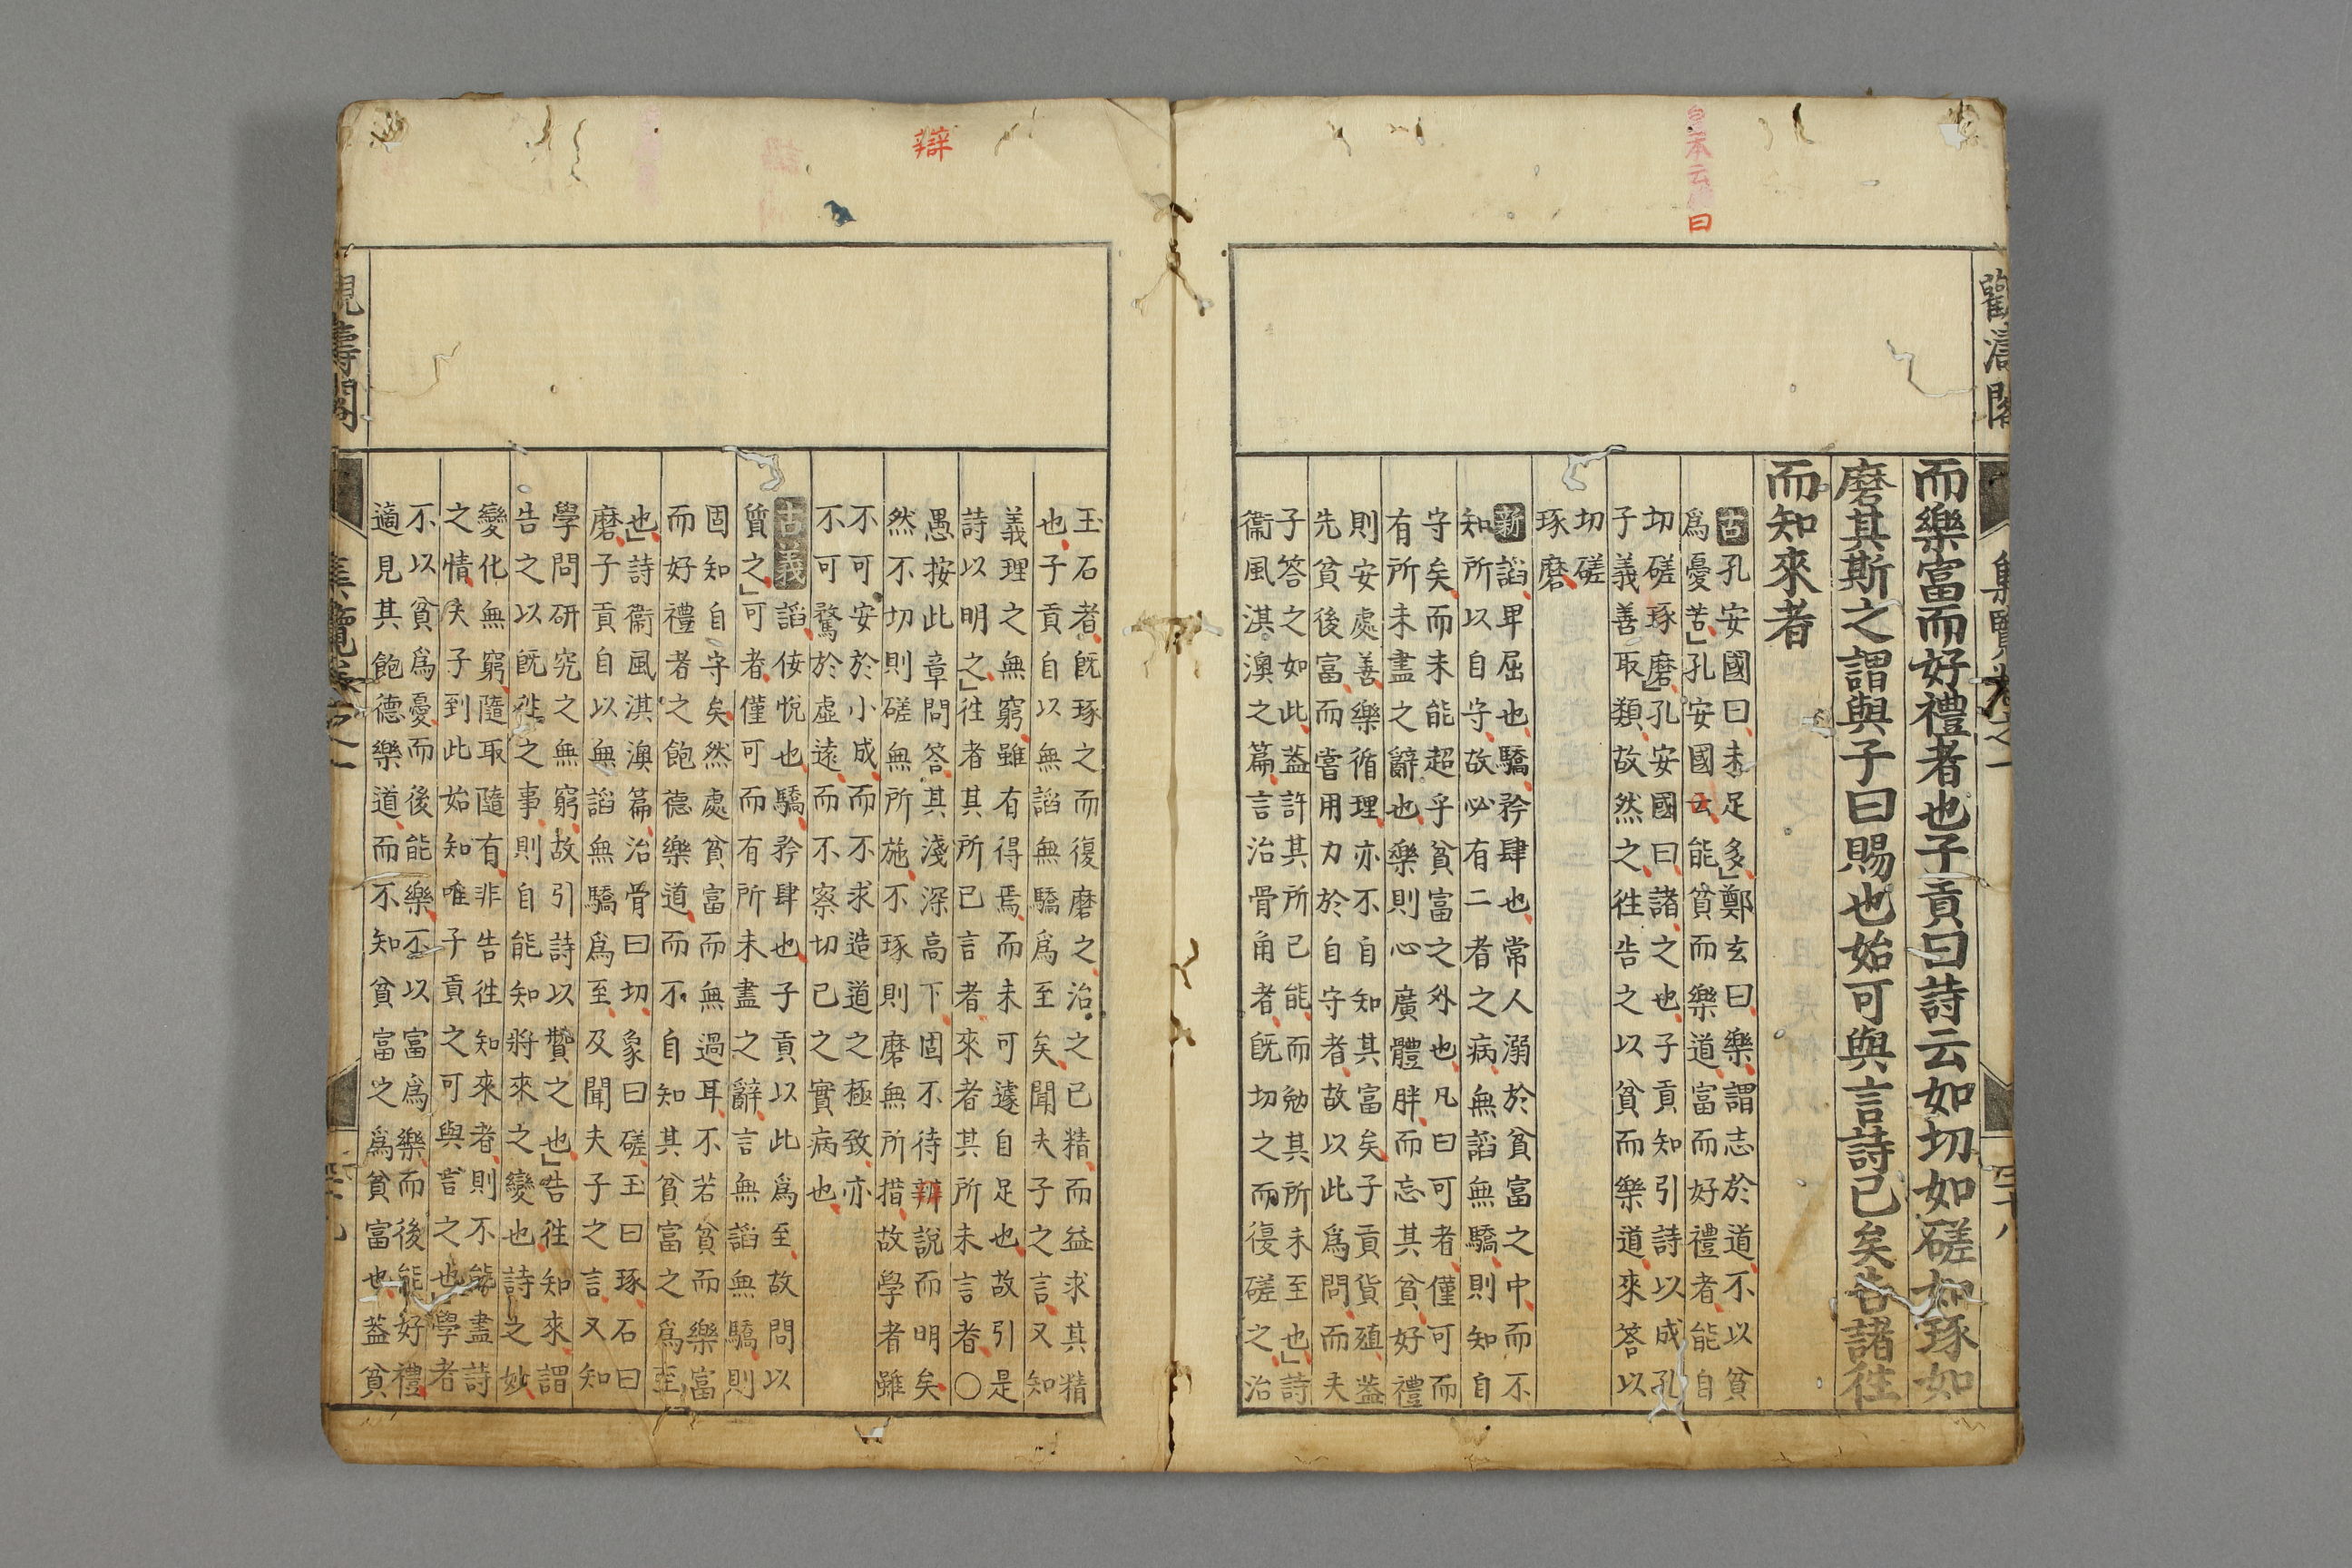 皇本云曰
觀濤閣
集覽卷之一
四十八
而樂富而好禮者也子貢曰詩云如切如磋如琢如
磨其斯之謂與子曰賜也始可與言詩已矣告諸往
而知來者
古孔安國曰未足多鄭玄曰樂謂志於道不以貧
爲憂苦孔安國云能貧而樂道富而好禮者能自
切磋琢磨孔安國曰諸之也子貢知引詩以成孔
子義善取類故然之往告之以貧而樂道來答以
切磋
琢磨
新諂卑屈也驕矜肆也常人溺於貧富之中而不
知所以自守故必有二者之病無諂無驕則知自
守矣而未能超乎貧富之外也凡曰可者僅可而
有所未盡之辭也樂則心廣體胖而忘其貧好禮
則安處善樂循理亦不自知其富矣子貢貨殖蓋
先貧後富而嘗用力於自守者故以此爲問而夫
子答之如此蓋許其所已能而勉其所未至也詩
衞風淇澳之篇言治骨角者既切之而復磋之治
辯
玉石者既琢之而復磨之治之已精而益求其精
也子貢自以無諂無驕爲至矣聞夫子之言又知
義理之無窮雖有得焉而未可遽自足也故引是
詩以明之往者其所已言者來者其所未言者〇
愚按此章問答其淺深高下固不待辨說而明矣
然不切則磋無所施不琢則磨無所措故學者雖
不可安於小成而不求造道之極致亦
不可騖於虛遠而不察切己之實病也
古義諂侫悅也驕矜肆也子貢以此爲至故問以
質之可者僅可而有所未盡之辭言無諂無驕則
固知自守矣然處貧富而無過耳不若貧而樂富
而好禮者之飽德樂道而不自知其貧富之爲至
也詩衞風淇澳篇治骨曰切象曰磋玉曰琢石曰
磨子貢自以無諂無驕爲至及聞夫子之言又知
學問研究之無窮故引詩以贊之也告往知來謂
告之以既往之事則自能知將來之變也詩之妙
變化無窮隨取隨有非告往知來者則不能盡詩
之情夫子到此始知唯子貢之可與言之也學者
不以貧爲憂而後能樂不以富爲樂而後能好禮
適見其飽德樂道而不知貧富之爲貧富也蓋貧
觀濤閣
集覽卷之一